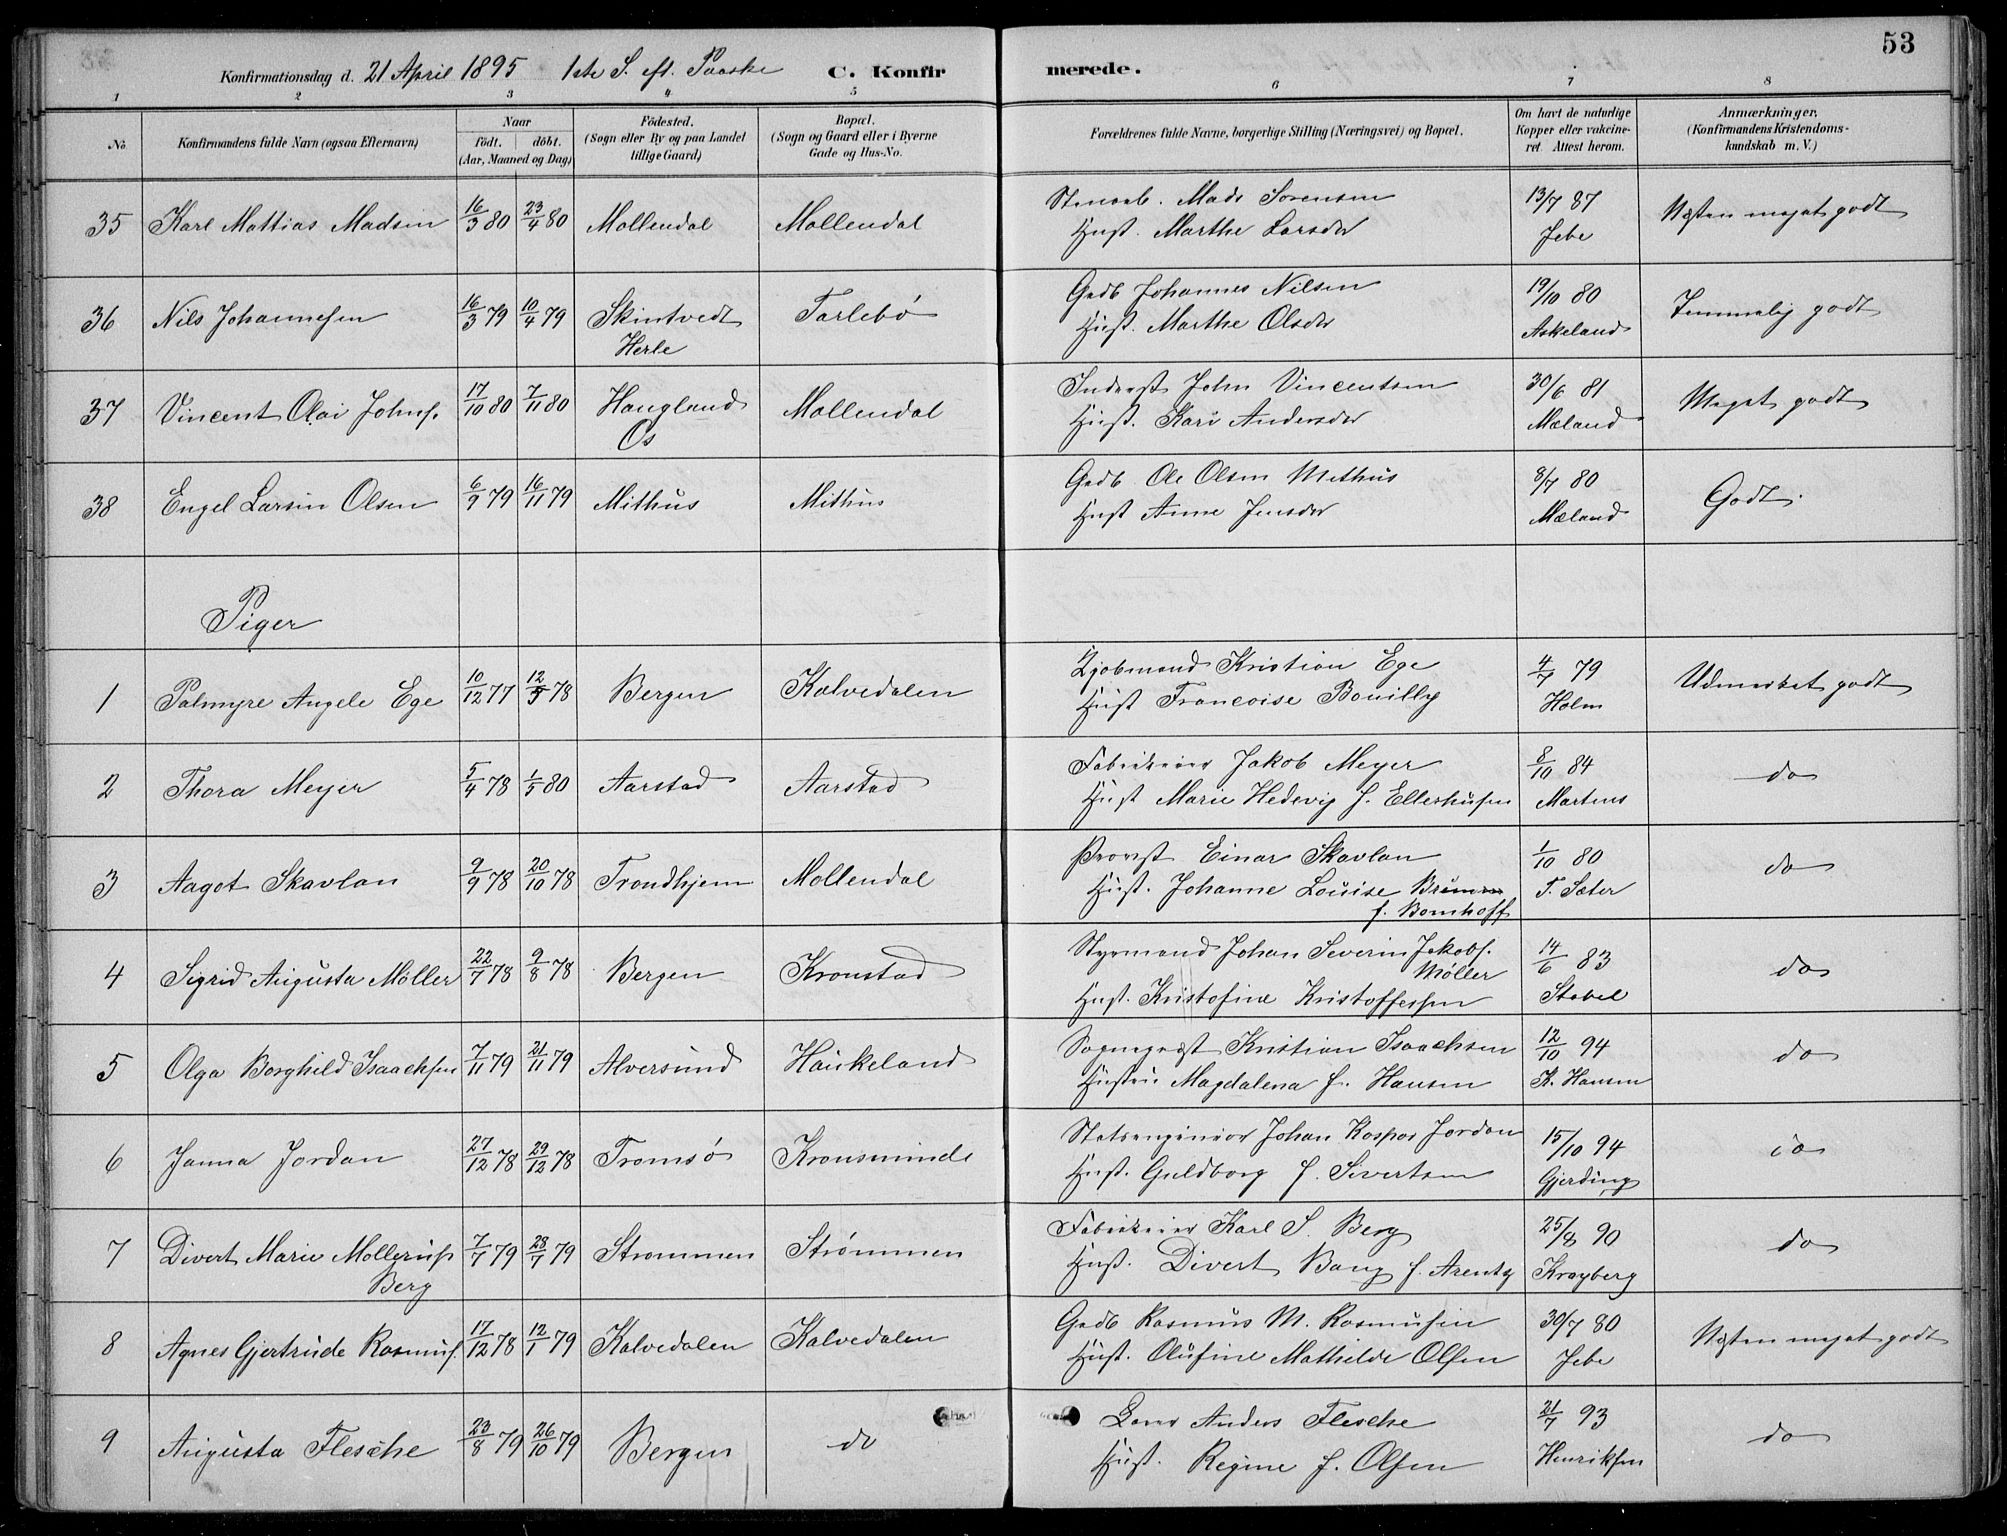 53
Konfirmationsdag d. 21 April 1895 1ste S. eft. Paaske C. Konfirmerede.
1 2 3 4 5 6 7 8
No Konfirmandens fulde Navn (ogsaa Efternavn) Naar födt. döbt. (Aar, Maaned og Dag) Födested. (Sogn eller By og paa Landet tillige Gaard) Bopæl. (Sogn og Gaard eller i Byerne Gade og Hus-No. Forældrenes fulde Navne, borgerlige Stilling (Næringsvei) og Bopæl. Om havt de naturlige Kopper eller vakcineret Attest herom. Anmærkninger. (Konfirmandens Kristendomskundskab m. V.)
35 Karl Mattias Madsen 16/3 80 23/4 80 Mollendal Mollendal Stenarb. Mads Sorensen 13/7 87 Næsten meget godt
Hust. Marthe Larsdr Jebe
36 Nils Johannesen 16/3 79 10/4 79 Skintvedt Tarlebø Gadb Johannes Nilsen 19/10 80 Temmelig godt
Herle Hust. Marthe Olsdr Askeland
37 Vincent Olai Johns. 17/10 80 7/11 80 Haugland Mollendal Inderst John Vincentsen 30/6 81 Meget godt
Os Hust. Kari Andersdr Mæland
38 Engel Larsin Olsen 6/9 79 16/11 79 Mithus Mithus Gadb Ole Olsen Methus 8/7 80 Godt.
Hust Anne Jensdr Mæland
Piger
1 Palmyre Angele Ege 10/12 77 12/5 78 Bergen Kalvedalen Kjøbmand Kristian Ege 4/7 79 Udmerket godt
Hust Francoise Bouilly Holm
2 Thora Meyer 5/4 78 1/5 80 Aarstad Aarstad Fabrikeier Jakob Meyer 8/10 84 do
Hust Marie Hedevig f. Ellerhusen Martens
3 Aagot Skavlan 9/9 78 20/10 78 Trondhjem Mollendal Provst Einar Skavlan 1/10 80 do
Hust. Johanne Louise T. Sæter
f. Bomhoff
4 Sigrid Augusta Møller 22/7 78 9/8 78 Bergen Kronstad Styrmand Johan Severin Jakobs. 14/6 83 do
Møller
Hust. Kristofine Kristoffersen Stabel
5 Olga Borghild Isaachsen 7/11 79 21/11 79 Alversund Haukeland Sogneprest Kristian Isaachsen 12/10 94 do
Hustru Magdalena f. Hansen K. Hansen
6 Janna Jordan 27/12 78 29/12 78 Tromsø Kronsminde Statsengeniør Johan Kaspar Jordan 15/10 94 do
Hust. Guldborg f. Sivertsen Gjerding
7 Divert Marie Mollerup 7/7 79 28/7 79 Strømmen Strømmen Fabrikeier Karl S. Berg 25/8 90 do
Berg Hust. Divert Bang f. Arentz Krøyberg
8 Agnes Gjertrude Rasmus. 17/12 78 12/1 79 Kalvedalen Kalvedalen Gadb Rasmus M. Rasmusen 30/7 80 Næsten meget godt
Hust. Olufine Mathilde Olsen Jebe
9 Augusta Flesche 23/8 79 26/10 79 Bergen do Anders Flesche 21/7 93 do
Hust. Regine f. Olsen Henriksen